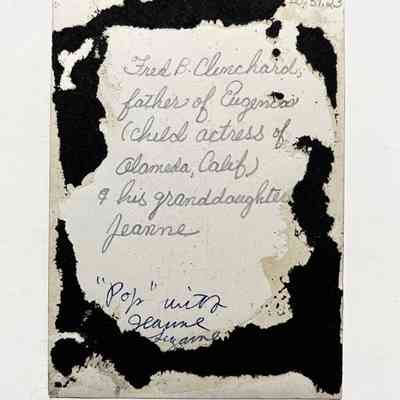 Fred B. Clinchard,
father of Eugenia
(child actress of
Alameda, Calif)
& his granddaughter
Jeanne
"Pop" with
Jeanne